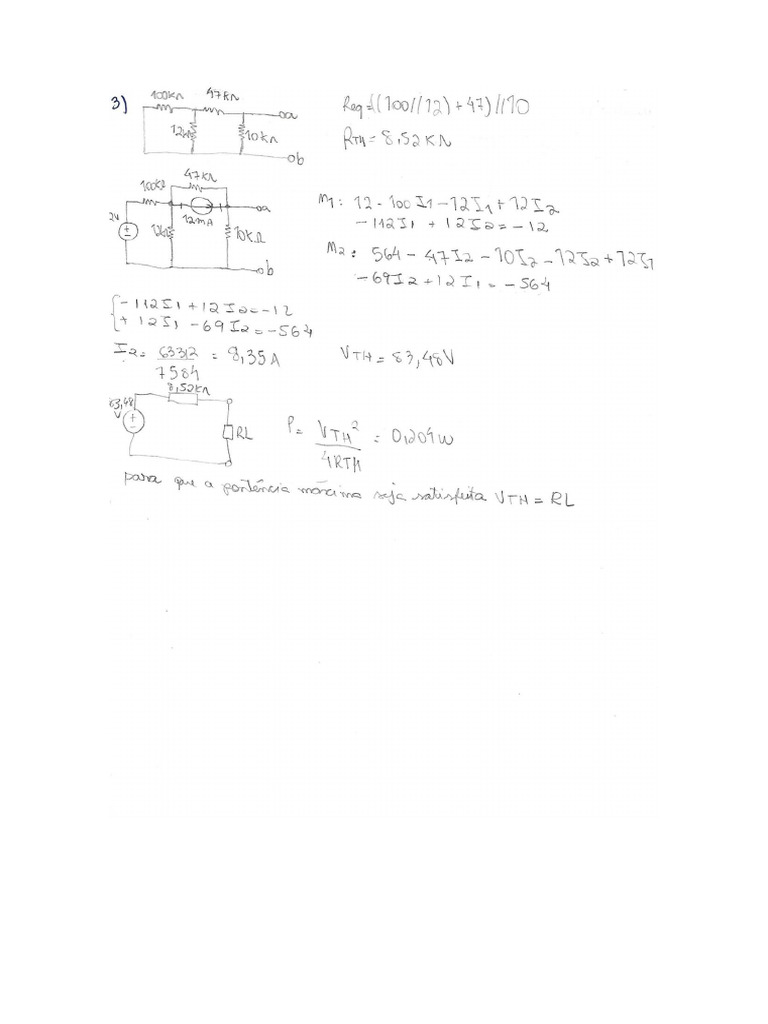 3)
100kΩ 47kΩ
12k 10kΩ
a
b
Req=((100//12)+47)//10
RTH=8,52KΩ
47kΩ
100kΩ
12mA
2V
12kΩ 10kΩ
a
b
M1: 12-100I1-12I1+12I2
-112I1+12I2=-12
M2: 564-47I2-10I2-12I2+12I1
-69I2+12I1=-564
{-112I1+12I2=-12
+12I1-69I2=-564
I2=63312/7584=8,35A
VTH=83,48V
8,52kΩ
83,48V
RL
P=VTH²/4RTH=0,204W
para que a pontência máxima seja satisfeita VTH=RL